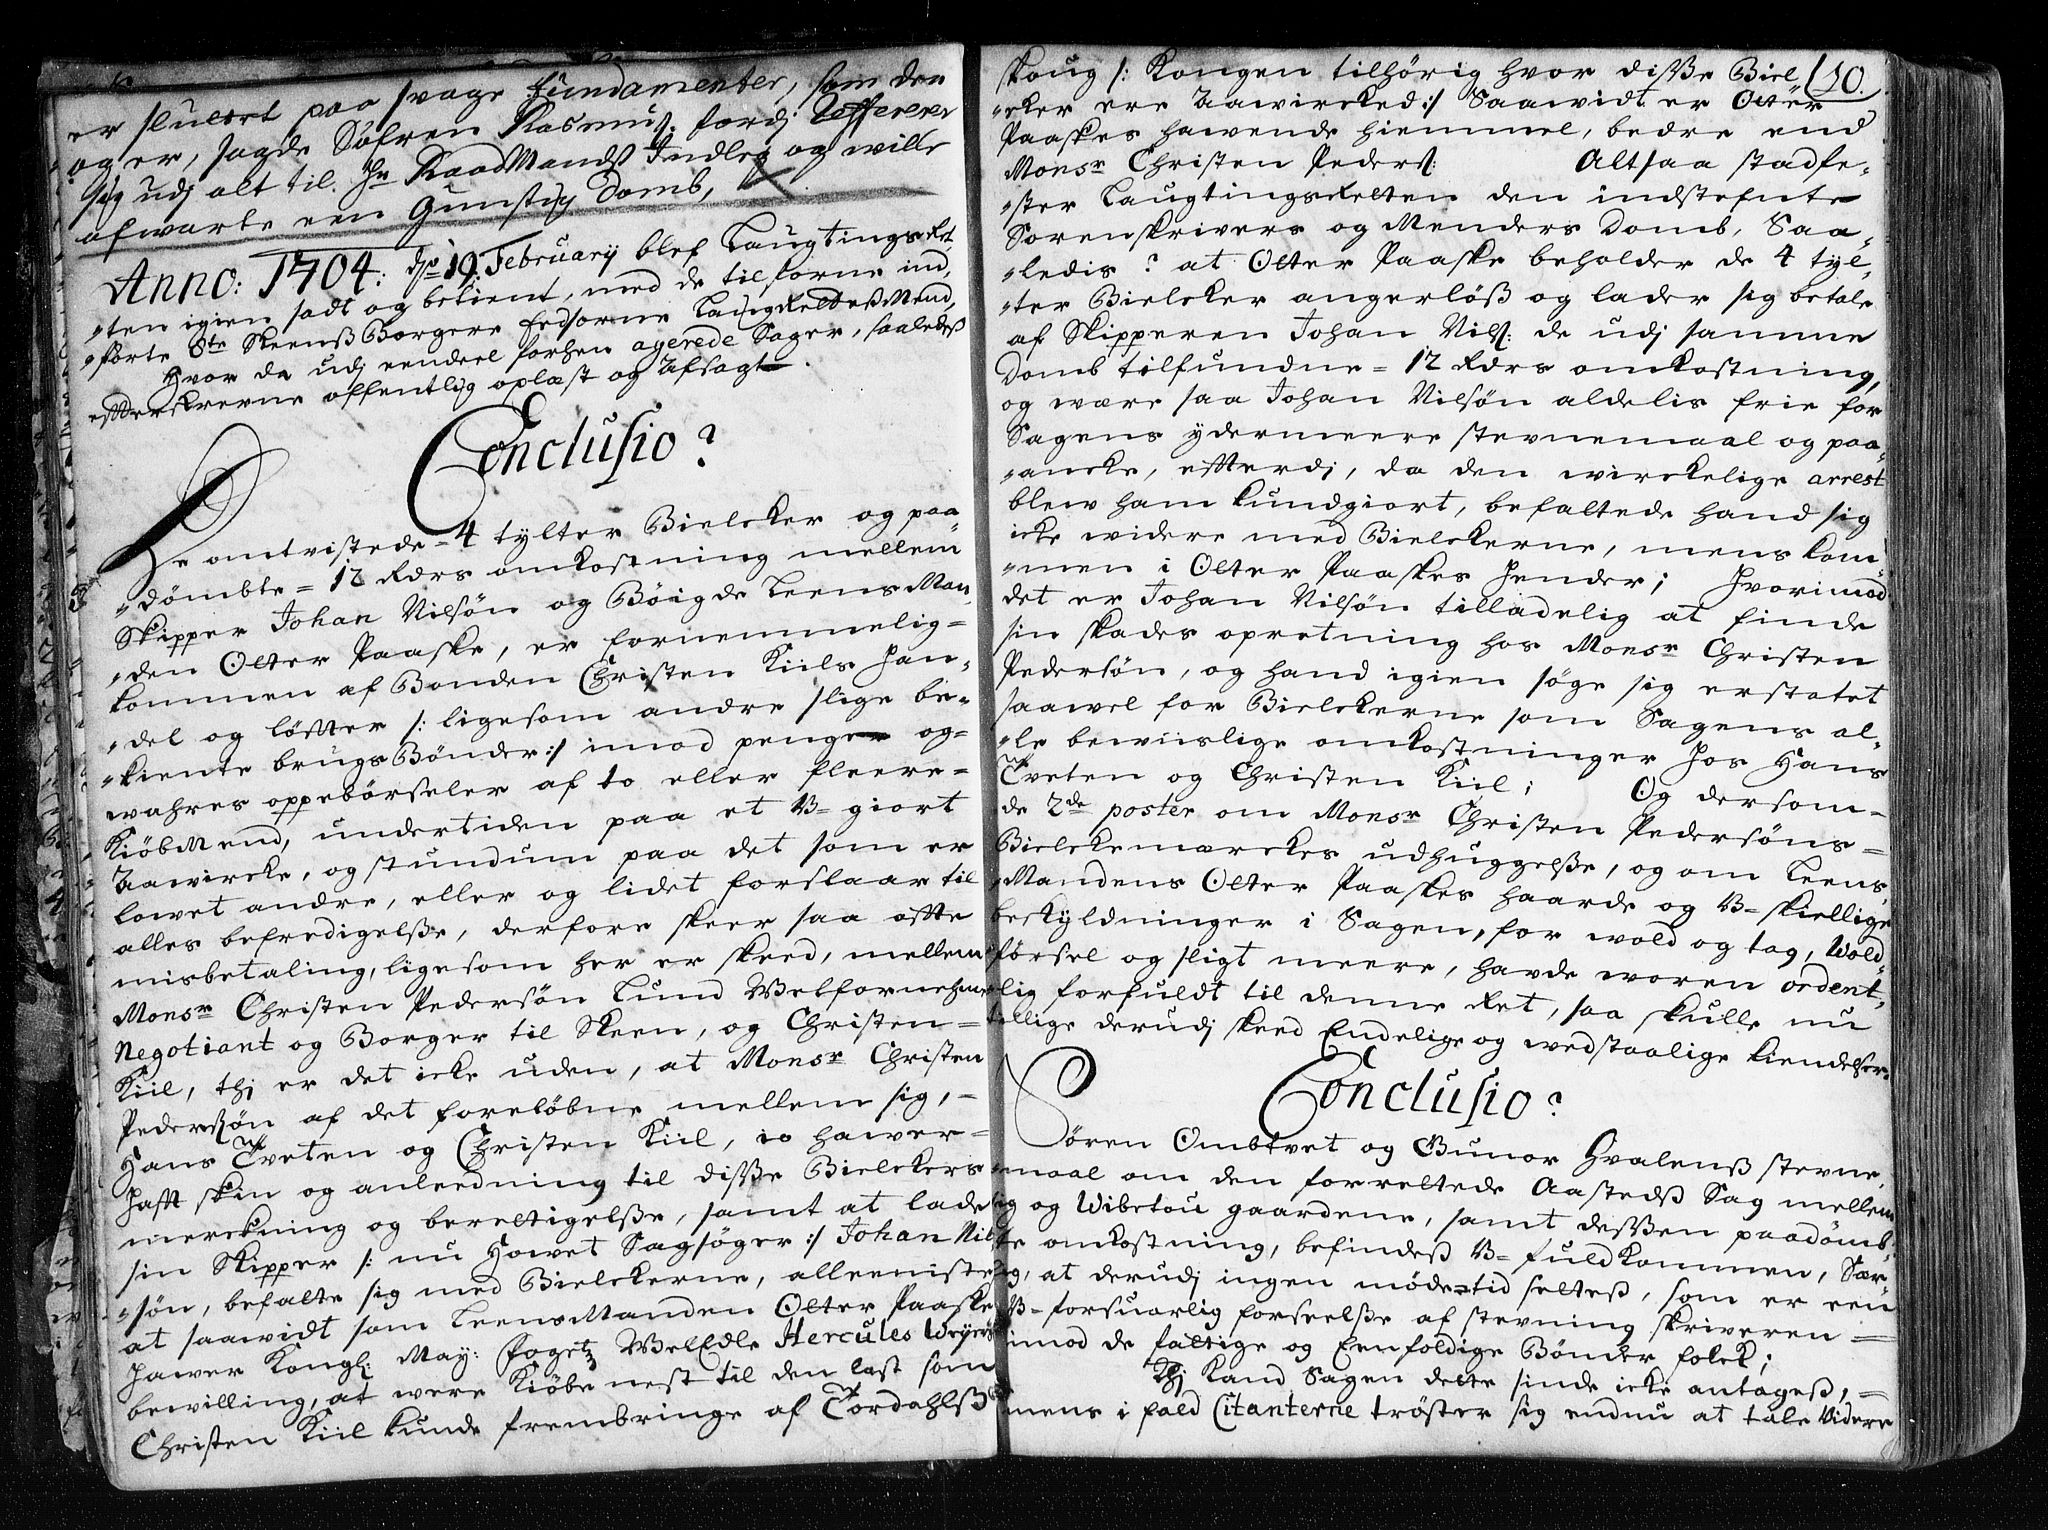 er sluttet paa svage fundamenter, som den
og er, sagde Søfren Rasmus: fordj Refferer
sig udj alt til. Hr RaadMandß Indleg og wille
afwarte een Gunstig Domb,
Anno: 1704: dn 19. February blef Laugtings Ret,,
,,ten igien sadt og betient, med de tilforne ind,,
,,førte 8te SkeensßBorgere Eedsorne LaugRettesMend,
Hvor da udj eendeel forhen agerede Sager, saaledß
effterskrevne offentlig oplæst og Afsagt.
Conclusio?
De omtvistede = 4 tylter Bielcker og paa,,
,,dømbte = 12 Rdrs omkostning mellem
Skipper Johan Nilsøn og Bøigde LeensMan,,
,,den Olter Paaske, er fornemmelig =
kommen af Bonden Christen Kiils Han,,
,,del og løffter /: ligesom andre slige be,,
,,kiente brugs Bønder :/ imod penger og =
wahres oppebørseler af to eller fleere =
KiøbMend, undertiden paa et U= giort
Aawircke, og stundum paa det som er
lowet andre, eller og lidet forslaar til
alles befredigelße, derfore skeer saa offte
misbetaling, ligesom her er skeed, mellem
Monsr Christen Pedersøn Lund Welfornehme
Negotiant og Borger til Skeen, og Christen =
Kiil, thj er det icke uden, at Monsr Christen
Pedersøn af det foreløbne mellem sig, =
Hans Tveten og Christen Kiil, io hawer =
Hafft skin og anleedning til disße Bielckers
merckning og berettigelße, samt at lade
sin Skipper /: nu Howet Sagsøger :/ Johan Nil,,
,,søn, befatte sig med Bielckerne, alleeniste
at saawidt som LeensManden Olter Paaske
Hawer Kongl: May: Fogetz WelEdle Hercules Weyers
bewilling, at were Kiøbe nest til den last som
Christen Kiil kunde frembringe af Tordahlß
skoug /: Kongen tilhørig hvor disße Biel 10.
,,cker ere Aawircked :/ Saawidt er Olter
Paaskes hawende hiemmel, bedre end
Monsr Christen Peders: Altsaa stadfe,,
,,ster LaugtingsRetten den indstefnte
Sorenskrivers og Menders Domb, Saa,,
,,ledis ? at Olter Paaske beholder de 4 tyl,,
,,ter Bielcker angerløß og lader sig betale
af Skipperen Johan Nils: de udj samme
Domb tilfundne = 12 Rdrs omkostning,
og were saa Johan Nilsøn aldelis frie for
Sagens ydermeere stevnemaal og paa,,
,,ancke, effterdj, da den wirckelige arrest
blew ham kundgiort, befattede hand sig
icke widere med Bielckerne, mens kom,,
,,men i Olter Paaskes Hender; Hvorimod
det er Johan Nilsøn tilladelig at finde
sin skades opretning hos Monsr Christen
Pedersøn, og hand igien søge sig erstatet
saawel for Bielckerne som Sagens al,,
,,le bewiislige omkostninger Hos Hans
Tveten og Christen Kiil; Og dersom =
de 2de poster om Monsr Christen Pedersøns =
Bielckemerckes udhuggelße, og om Leens,,
,,Mandens Olter Paaskes haarde og U= skiellige
beskyldninger i Sagen, for wold og tag, Wold,,
førsel og sligt meere, havde woren ordent,,
,,lig forfuldt til denne Ret, saa skulle nu
tillige derudj skeed Endelige og wedstaalige kiendelßer.
Conclusio?
Søren Ombtvet og Gunor Hvalenß stevne,,
,,maal om den forrettede Aastedß Sag mellem
sig og Wibetou gaardene, samt desßen paadømb,,
te omkostning, befindeß U= fuldkommen, Sær,,
ig, at derudj ingen mødetid setteß, som er een
U= forsuarlig forseelße af stevning skriveren =
imod de fattige og Eenfoldige Bønder folck;
Thj Kand Sagen dette sinde icke antageß, =
mens i fald Citanterne trøster sig endnu at tale Videre